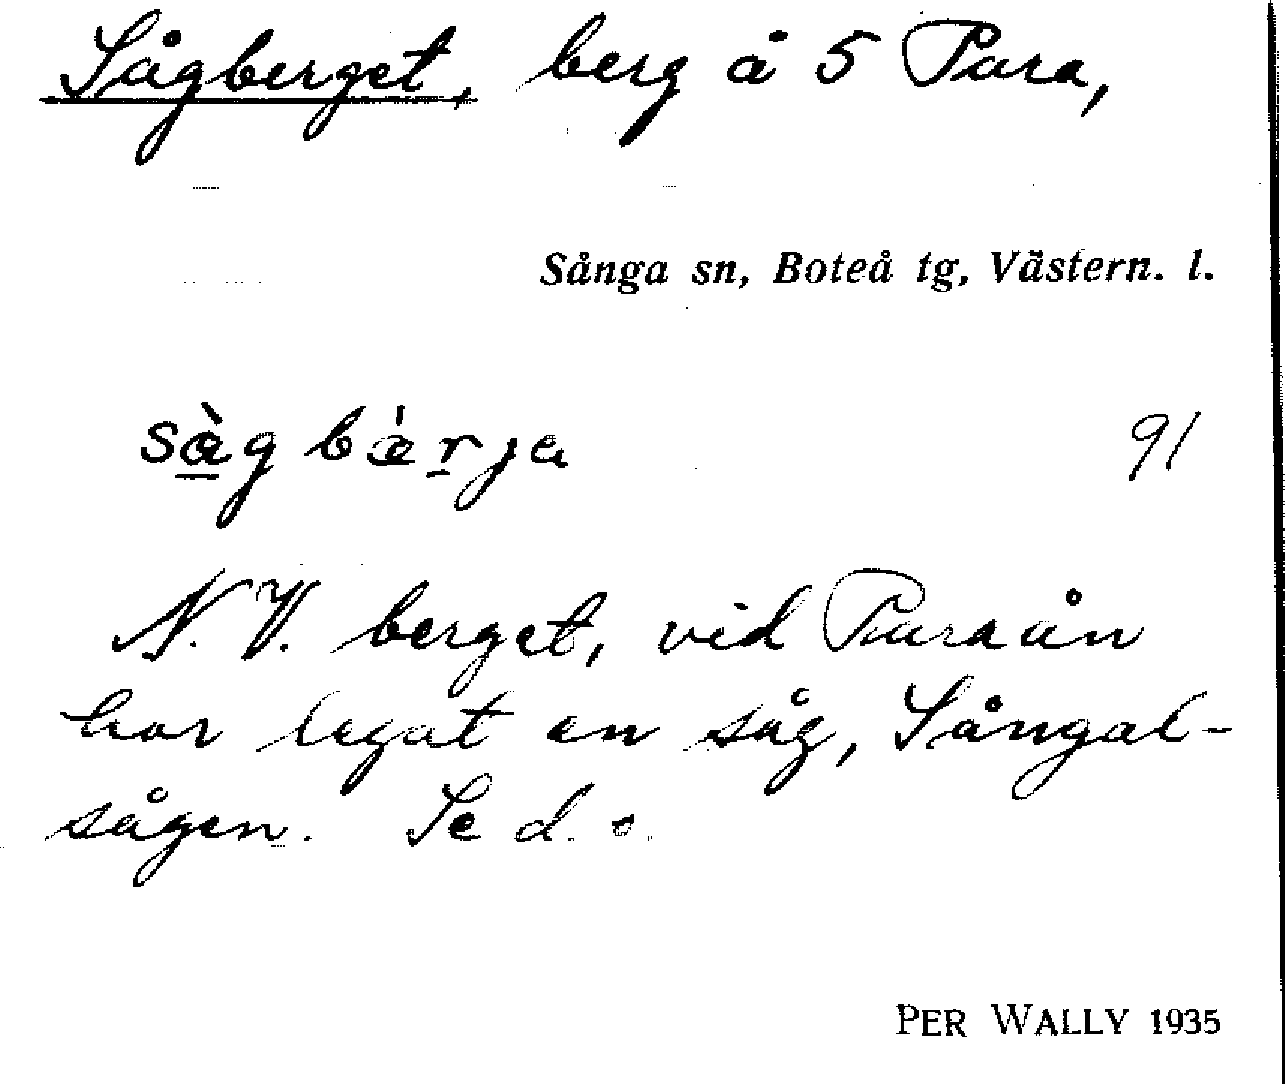 Sågberget, berg å 5 Para,
Sånga sn, Boteå tg, Västern. l.
sàg bǽrja 91
N.V. berget, vid Paraån
har legat en såg, Sångal-
sågen. Se d. o.
PER WALLY 1935